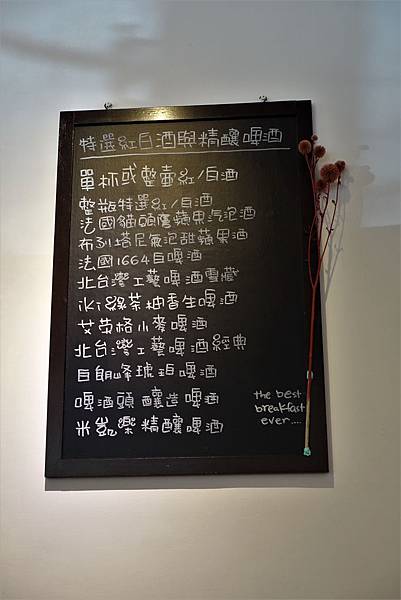 特選紅白酒與精釀啤酒
單杯或整壺紅/白酒
整瓶特選紅/白酒
法國貓頭鷹蘋果汽泡酒
布列塔尼氣泡甜蘋果酒
法國1664白啤酒
北台灣工藝啤酒雪藏
水ㄦ綠茶柚香生啤酒
艾英格小麥啤酒
北台灣工藝啤酒經典
白朗峰琥珀啤酒
啤酒頭釀造啤酒
米凱樂精釀啤酒
the best
breakfast
ever....